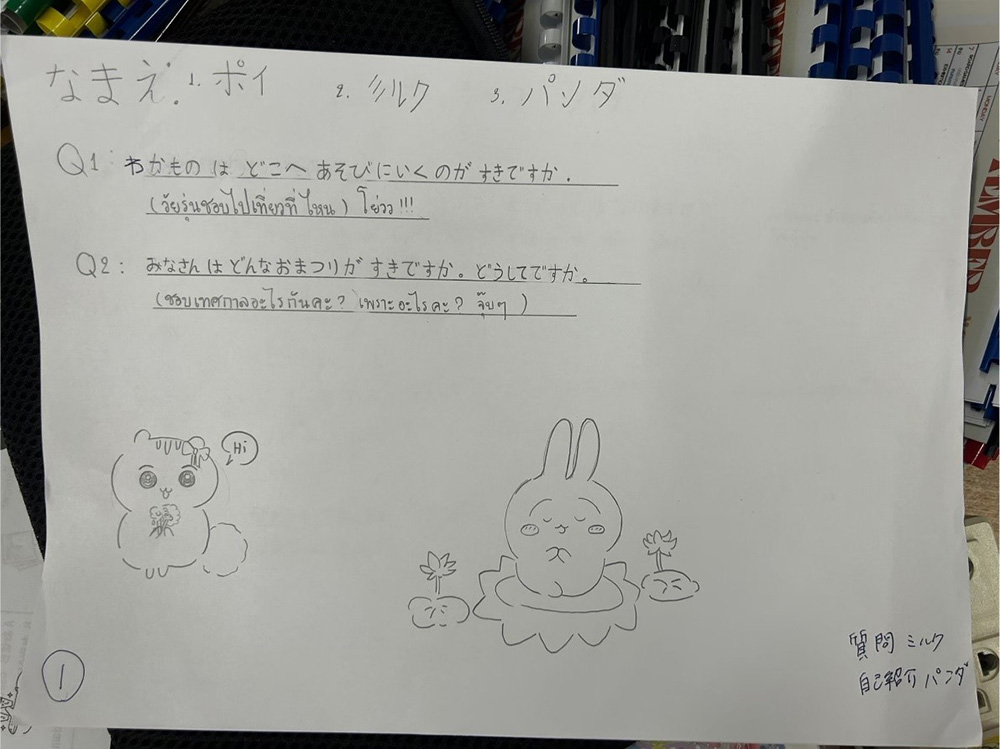 なまえ. 1. ポイ 2. ミルク 3. パンダ
Q1: わかもの は どこへ あそびにいくのが すきですか.
(วัยรุ่นชอบไปเที่ยวที่ไหน) โย่วว !!!
Q2: みなさんはどんなおまつりが すきですか。どうしてですか。
(ชอบเทศกาลอะไรกันคะ? เพราะอะไรคะ? จุ๊บๆ)
Hi
質問 ミルク
自己紹介 パンダ
1
ADMIRER